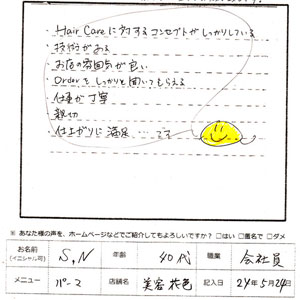 ・Hair Careに対するコンセプトがしっかりしている
・技術がある
・お店の雰囲気が良い
・Orderをしっかりと聞いてもらえる
・仕事が丁寧
・親切
・仕上がりに満足…です
※ あなた様の声を、ホームページなどでご紹介してもよろしいですか? □はい □匿名で □ダメ
お名前 (イニシャル可) S,N 年齢 40代 職業 会社員
メニュー パーマ 店舗名 美容 花色 記入日 24年5月24日